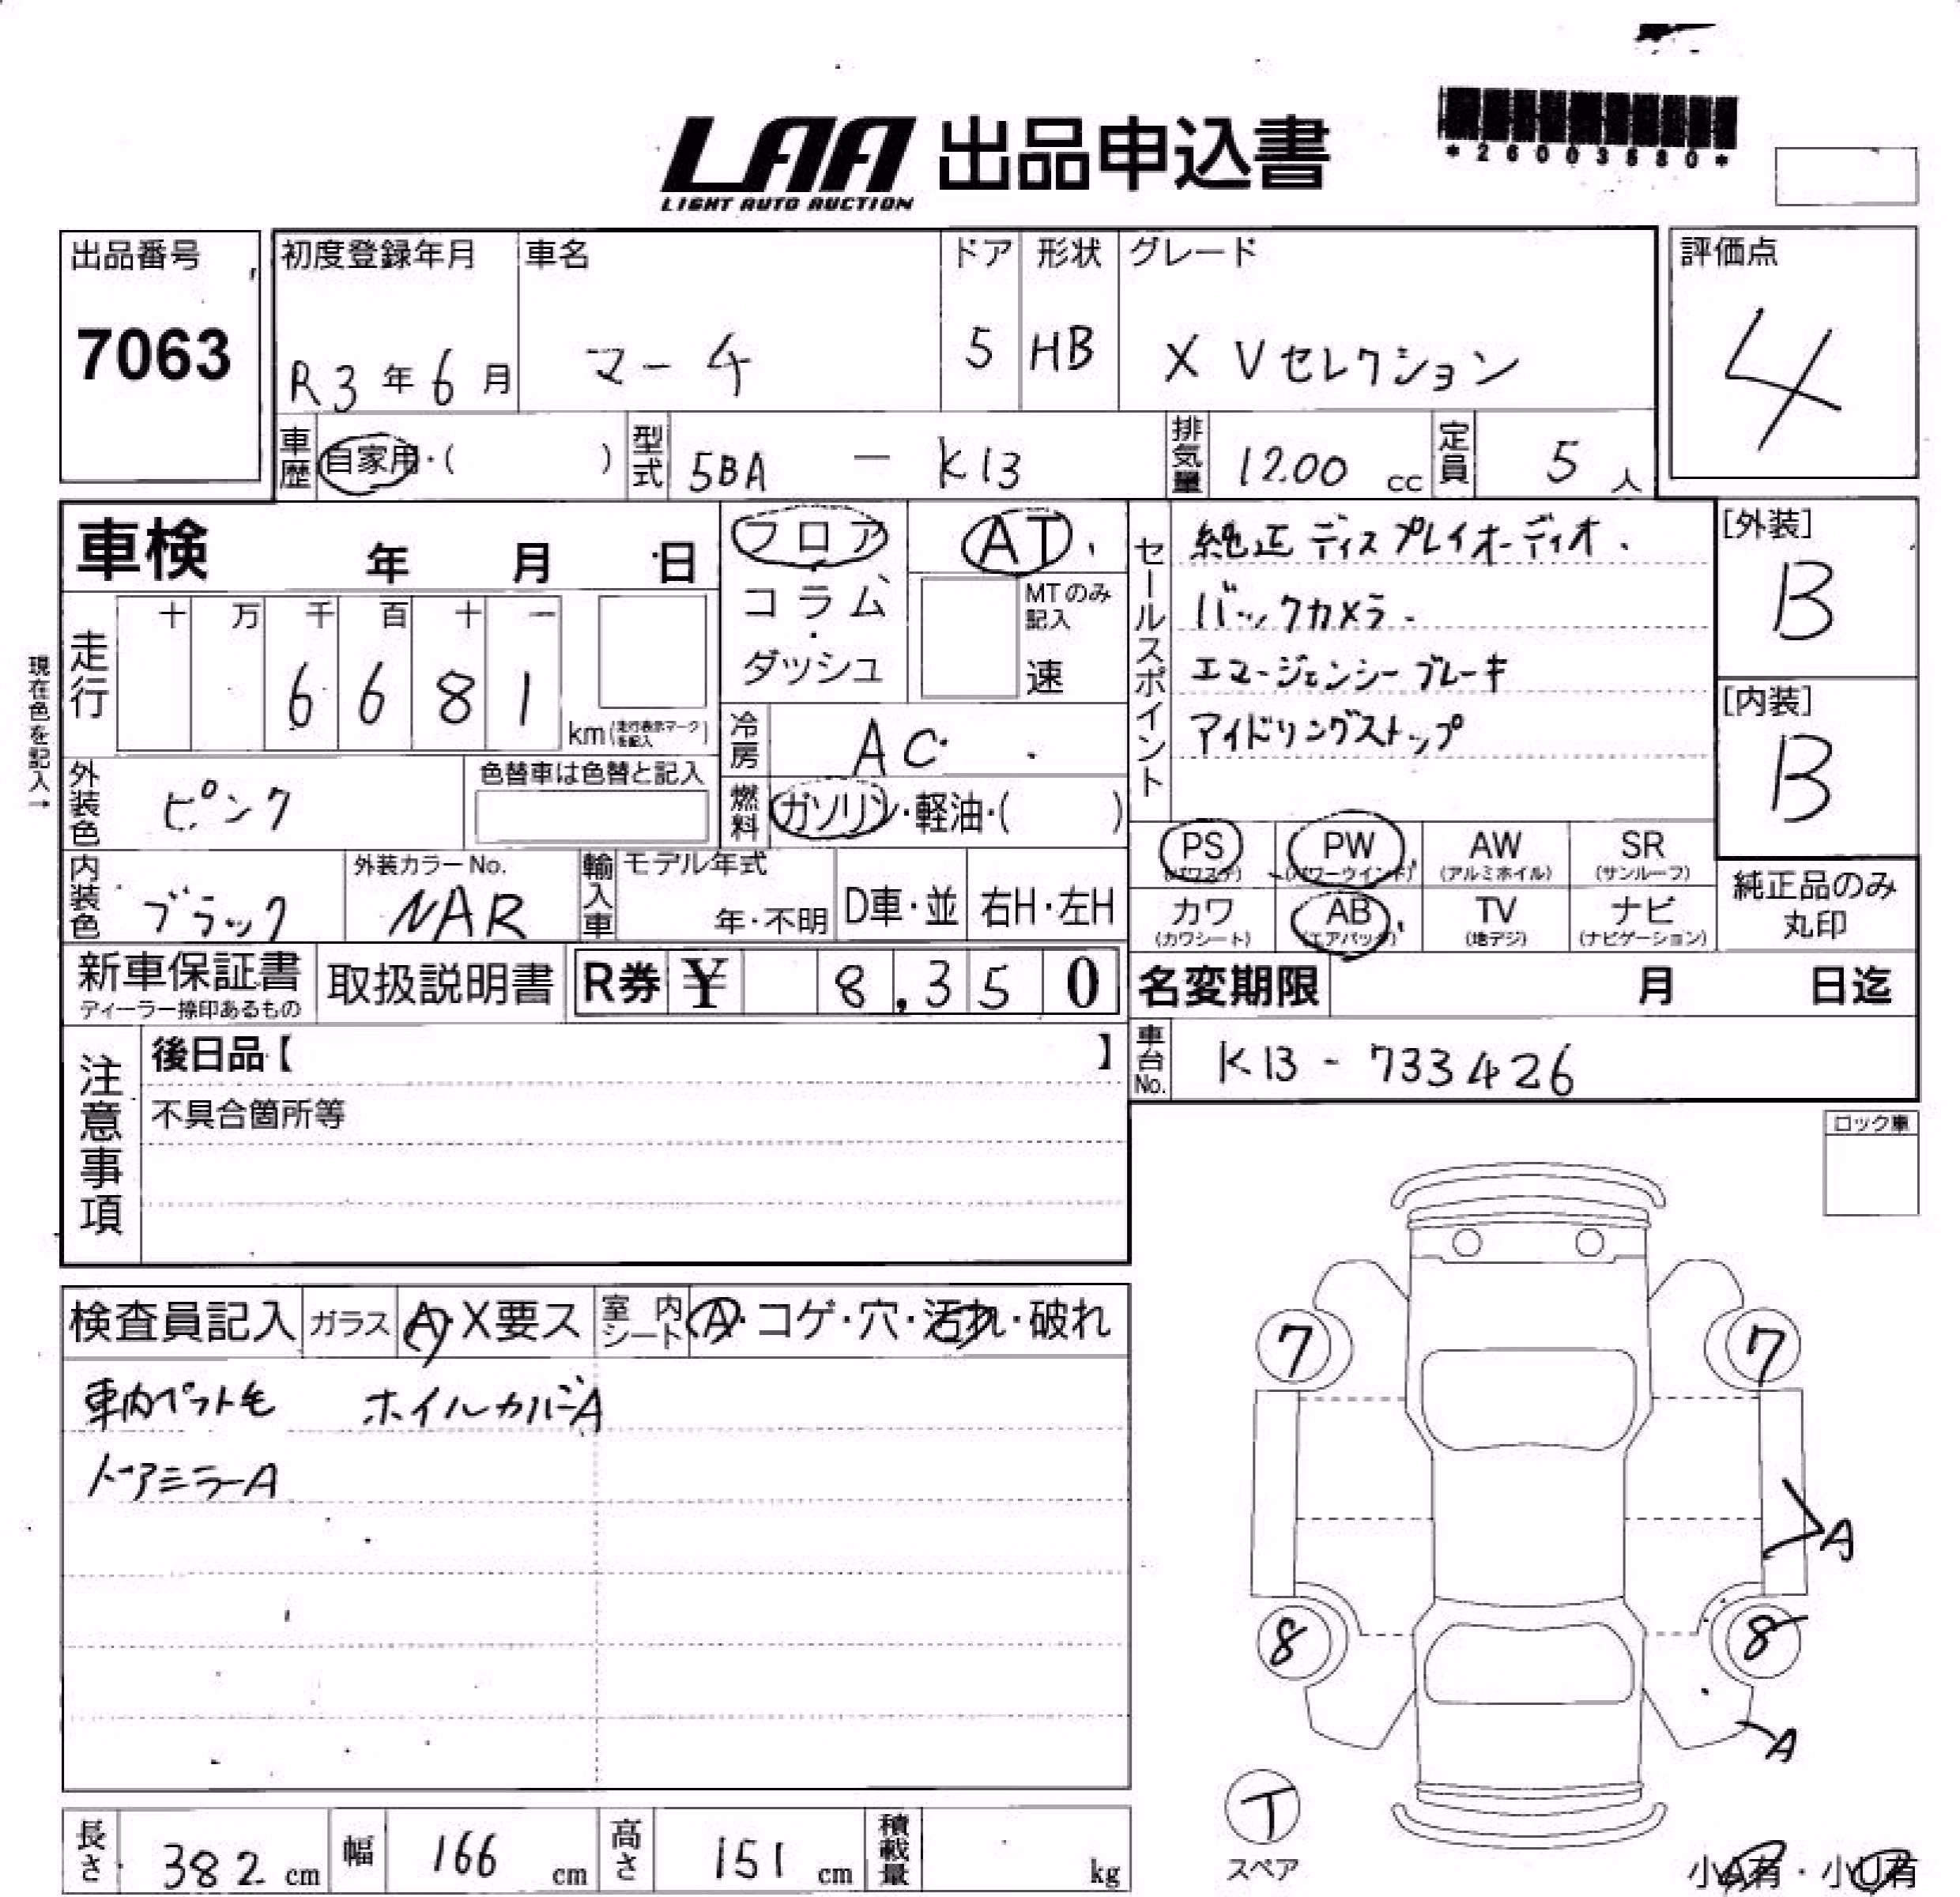 LAA 出品申込書
LIGHT AUTO AUCTION
*26003580*
出品番号
7063
初度登録年月
R3年6月
車名
マーチ
ドア
5
形状
HB
グレード
X Vセレクション
評価点
4
車歴
自家用・( )
型式
5BA - K13
排気量
1200 cc
定員
5人
車検 年 月 日
フロア
コラム
・
ダッシュ
AT
MTのみ
記入
速
セールスポイント
純正ディスプレイオーディオ.
バックカメラ.
エマージェンシーブレーキ
アイドリングストップ
[外装]
B
[内装]
B
現在色を記入→
走行
十 万 千 百 十 一
6 6 8 1
km(走行表示マークを記入)
冷房
AC
燃料
ガソリン・軽油・( )
外装色
ピンク
色替車は色替と記入
内装色
ブラック
外装カラーNo.
NAR
輸入車
モデル年式
年・不明
D車・並
右H・左H
PS
(パワステ)
PW
(パワーウインド)
AW
(アルミホイル)
SR
(サンルーフ)
カワ
(カワシート)
AB
(エアバック)
TV
(地デジ)
ナビ
(ナビゲーション)
純正品のみ
丸印
新車保証書
ディーラー捺印あるもの
取扱説明書
R券 ¥ 8,350
名変期限 月 日迄
車台No.
K13-733426
注意事項
後日品【 】
不具合箇所等
ロック車
検査員記入
ガラス
A・X要ス
室内シート
A・コゲ・穴・汚れ・破れ
車内ペット毛 ホイルカバーA
ドアミラーA
7
7
A
8
8
A
T
スペア
小A有・小U有
長さ
382 cm
幅
166 cm
高さ
151 cm
積載量
kg